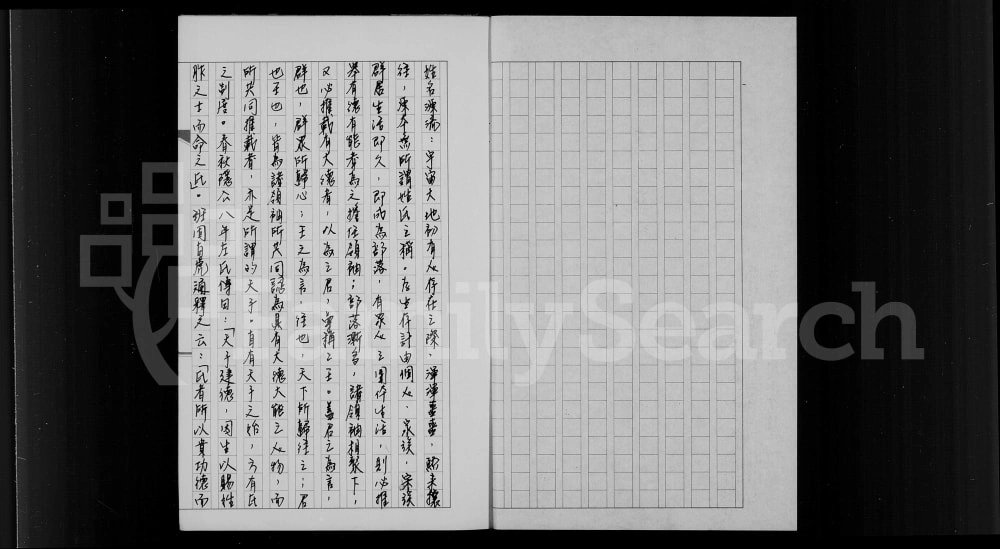 姓名源流：宇宙大地初有人存在之際，渾渾噩噩，熙來攘
往，原本無所謂姓氏之稱。為生存計由個人、家族、宗族
群居生活即久，即成為部落，有眾人之團体生活，則必推
舉有德有能者為之擔任領袖；部落漸多，諸領袖相聚下，
又必推載有大德者，以為之君，尊稱之王。蓋君之為言，
群也，群眾所歸心；王之為言，往也，天下所歸往之；君
也王也，皆為諸領袖所共同認為具有大德大能之人物，而
所共同推載者，亦是所謂的天子。自有天子之始，方有氏
之制度。春秋隱公八年左氏傳曰：「天子建德，因生以賜姓
胙之土而命之氏」。班固白虎通釋之云：「氏者所以貴功德而
FamilySearch